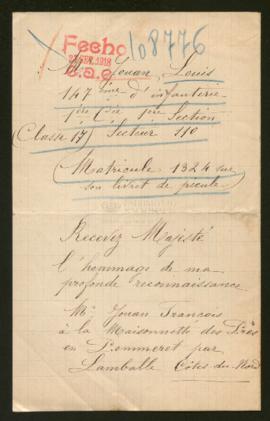 Fecho
108776
FEB. 1918
Mr Jouan, Louis
147 ième d'infanterie
1ère Cie 1ère Section
(Classe 17) Secteur 110
(Matricule 1324 sur
son livret de pécule)
Recevez Majesté
l'hommage de ma
profonde reconnaissance
Mr Jouan François
à la Maisonnette des Prés
en Pommeret par
Lamballe Côtes-du-Nord